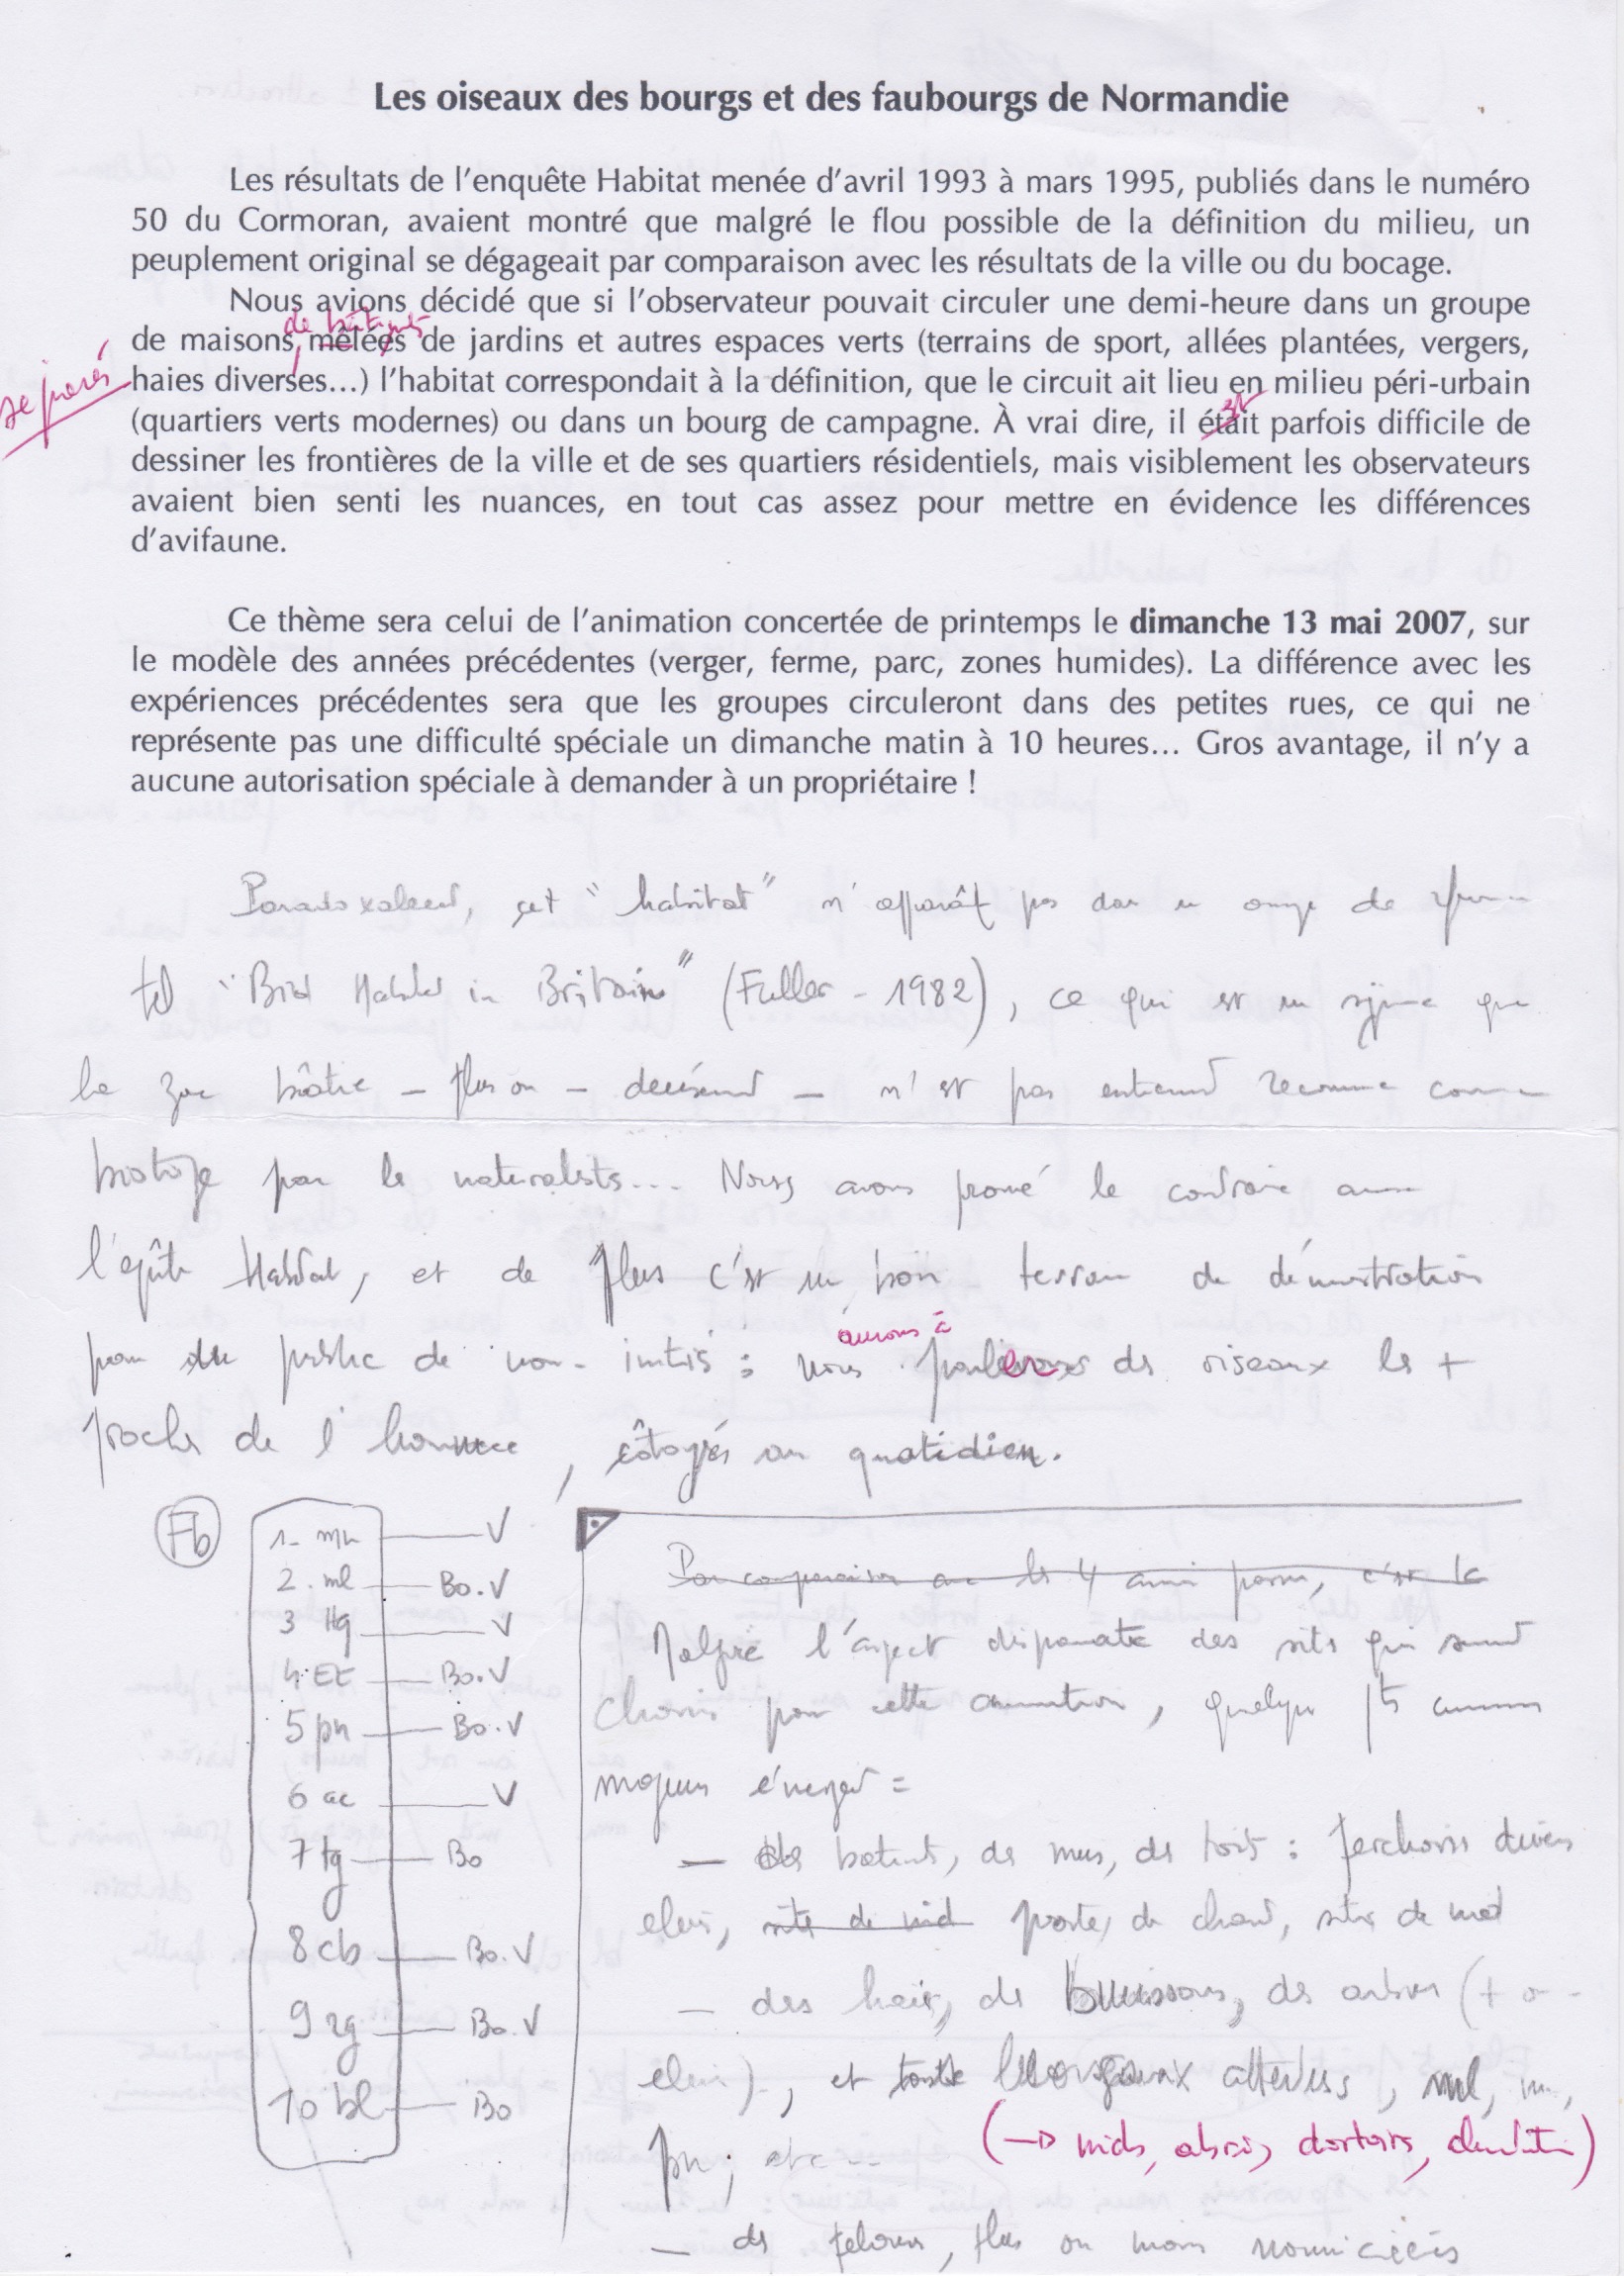 Les oiseaux des bourgs et des faubourgs de Normandie
Les résultats de l'enquête Habitat menée d'avril 1993 à mars 1995, publiés dans le numéro
50 du Cormoran, avaient montré que malgré le flou possible de la définition du milieu, un
peuplement original se dégageait par comparaison avec les résultats de la ville ou du bocage.
Nous avions décidé que si l'observateur pouvait circuler une demi-heure dans un groupe
de maisons, mêlées de jardins et autres espaces verts (terrains de sport, allées plantées, vergers,
séparés
haies diverses...) l'habitat correspondait à la définition, que le circuit ait lieu en milieu péri-urbain
est
(quartiers verts modernes) ou dans un bourg de campagne. À vrai dire, il était parfois difficile de
dessiner les frontières de la ville et de ses quartiers résidentiels, mais visiblement les observateurs
avaient bien senti les nuances, en tout cas assez pour mettre en évidence les différences
d'avifaune.
Ce thème sera celui de l'animation concertée de printemps le dimanche 13 mai 2007, sur
le modèle des années précédentes (verger, ferme, parc, zones humides). La différence avec les
expériences précédentes sera que les groupes circuleront dans des petites rues, ce qui ne
représente pas une difficulté spéciale un dimanche matin à 10 heures... Gros avantage, il n'y a
aucune autorisation spéciale à demander à un propriétaire !
Paradoxalement, cet "habitat" n'apparaît pas dans un ouvrage de
tel "Bird Habitats in Britain" (Fuller - 1982), ce qui est un signe que
la zone bâtie - plus ou - densément - n'est pas entièrement reconnue comme
biotope par les naturalistes... Nous avons prouvé le contraire avec
l'enquête Habitat, et de plus c'est un bon terrain de démonstration
aurons à
pour du public de non-initiés : nous parler des oiseaux les +
proches de l'homme, côtoyés au quotidien.
Fb
1- mn V
2. ml Bo.V
3 Hq V
4. EE Bo.V
5 pn Bo.V
6 ac V
7 tg Bo
8 cb Bo.V
9 rg Bo.V
10 bl Bo
Par comparaison avec les 4 années passées, c'est le
Malgré l'aspect disparate des sites qui seront
choisis pour cette animation, quelques pts communs
majeurs émergent =
- des bâtiments, des murs, des toits : perchoirs divers
élevés, sites de nid postes de chant, sites de nid
- des haies, des buissons, des arbres (+ ou -
élevés), et
pn, etc...
(→ nids, abris, dortoirs, alimentation)
- des pelouses, plus ou moins